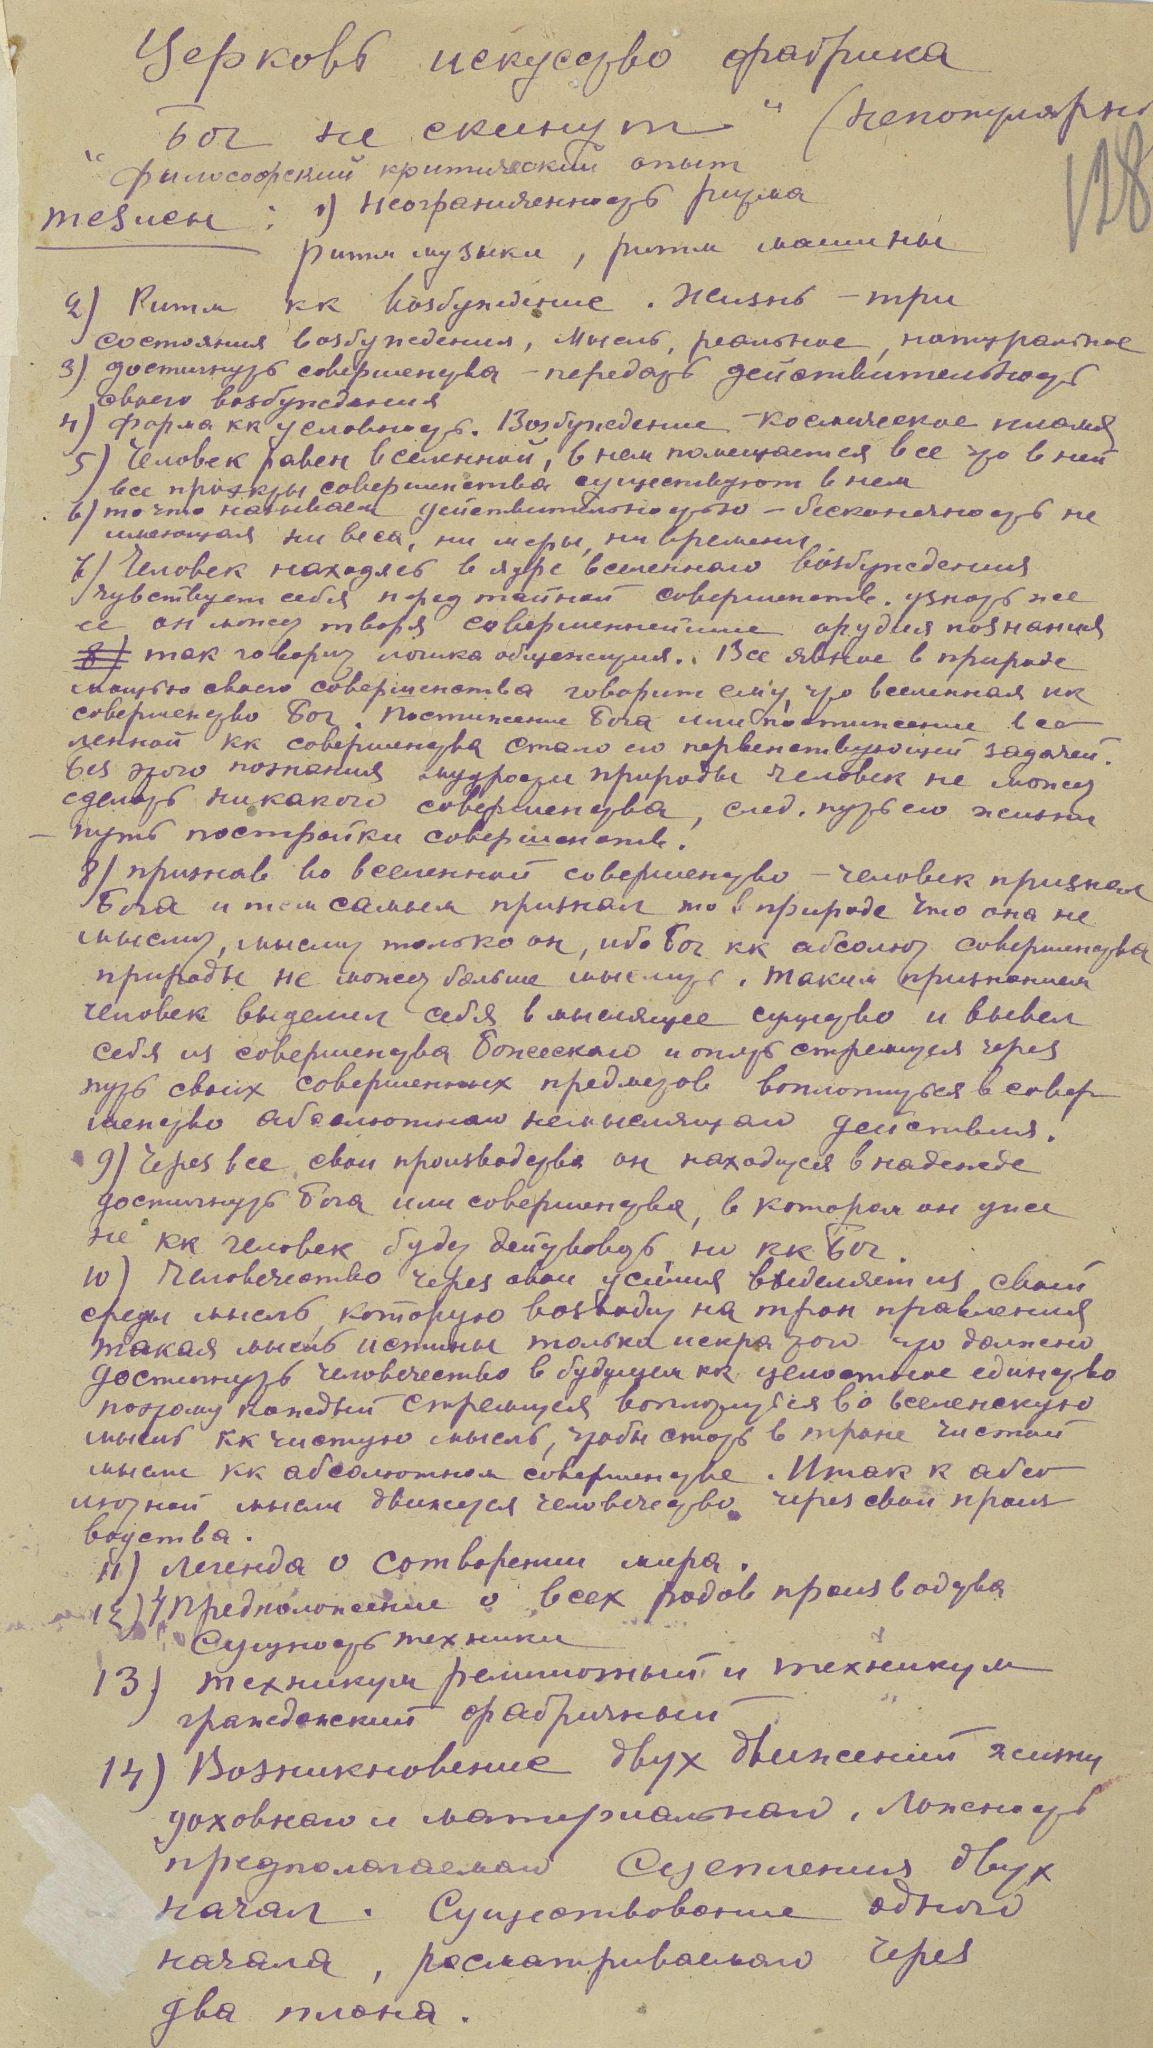 Церковь искусство фабрика
Бог не скинут" (непопулярно
"философский критический опыт
128
тезисы: 1) Неограниченность ритма
ритм музыки, ритм машины
2) Ритм кк возбуждение. Жизнь – три
состояния возбуждения, мысль, реальное, натуральное
3) достигнуть совершенства – передать действительность
своего возбуждения
4) форма кк условность. Возбуждение – космическое пламя
5) Человек равен вселенной, в нем помещается все что в ней
все проэкты совершенства существуют в нем
6) то что называем действительностью – бесконечность не
имеющая ни веса, ни меры, ни времени
7) Человек находясь в ядре вселенного возбуждения
чувствует себя перед тайной совершенств. узнать же
ее он может творя совершеннейшие орудия познания
8) так говорит логика общежития. Все явное в природе
мощью своего совершенства говорит ему, что вселенная кк
совершенство Бог. Постижение Бога или постижение все
ленной кк совершенства стало его первенствующей задачей.
Без этого познания мудрости природы человек не может
сделать никакого совершенства, след. путь его жизни
– путь постройки совершенств.
8) признав во вселенной совершенство – человек признал
Бога и тем самым признал то в природе что она не
мыслит, мыслит только он, ибо Бог кк абсолют совершенства
природы не может больше мыслить. Таким признанием
человек выделил себя в мыслящее существо и вывел
себя из совершенства Божеского и опять стремится через
путь своих совершенных предметов воплотиться в совер
шенство абсолютного немыслящего действия.
9) Через все свои производства он находится в надежде
достигнуть Бога или совершенства, в котором он уже
не кк человек будет действовать, но кк Бог.
10) Человечество через свои усилия выделяет из своей
среды мысль, которую возводит на трон правления
такая мысль истины только искра того что должно
достигнуть человечество в будущем кк целостное единство
поэтому каждый стремится воплотиться во вселенскую
мысль кк чистую мысль, чтобы стать в троне чистой
мысли кк абсолютном совершенстве. Итак к абсо
лютной мысли движется человечество через свои произ
водства.
11) Легенда о сотворении мира.
12) Предположение о всех родов производства
Сущность техники
13) техникум религиозный и техникум
гражданский фабричный
14) Возникновение двух движений жизни
духовного и материального. Ложность
предполагаемого Сцепления двух
начал. Существование одного
начала, рассматриваемого через
два плана.